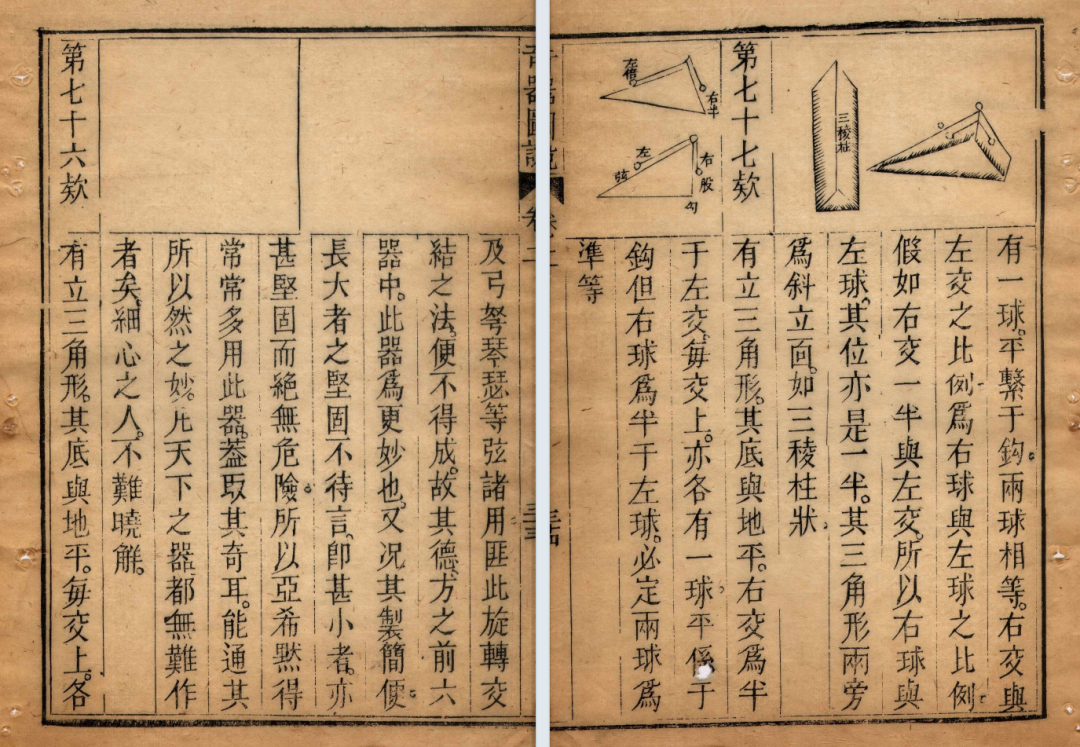 及弓弩琴瑟等弦諸用匪此旋轉交
結之法。便不得成。故其德。方之前六
器中。此器爲更妙也。又况其製簡便。
長大者之堅固不待言。卽甚小者。亦
甚堅固而絕無危險。所以亞希黙得
常常多用此器。葢取其奇耳。能通其
所以然之妙。凡天下之器都無難作
者矣。細心之人。不難曉解。
第七十六欵
有立三角形。其底與地平。每交上。各
奇器圖說
卷二
三十四
有一球。平繫于鈎。兩球相等。右交與
左交之比例。爲右球與左球之比例。
假如右交一半與左交。所以右球與
左球。其位亦是一半。其三角形兩旁
爲斜立面。如三稜柱狀。
三稜柱
第七十七欵
有立三角形。其底與地平。右交爲半
于左交。每交上。亦各有一球。平係于
鈎但右球爲半于左球。必定兩球爲
準等
左倍
右半
左
弦
右
股
勾